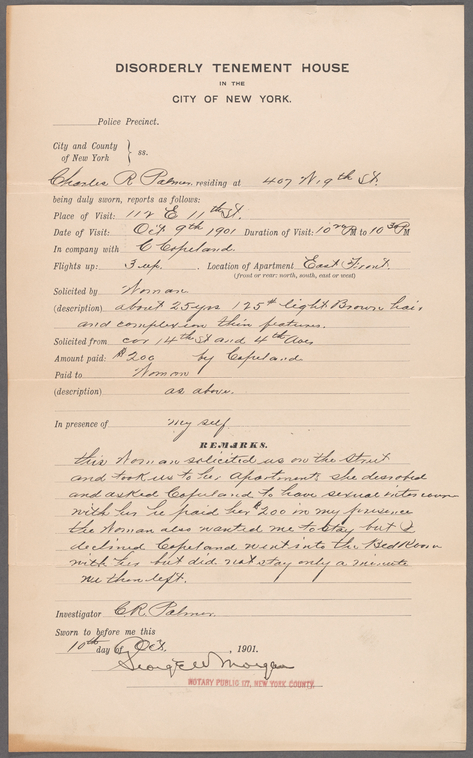 DISORDERLY TENEMENT HOUSE
IN THE
CITY OF NEW YORK.
Police Precinct.
City and County
of New York } ss.
Charles R. Palmer residing at 407 W. 9th St.
being duly sworn, reports as follows:
Place of Visit: 112 E 11th St.
Date of Visit: Oct 9th 1901 Duration of Visit: 10 PM to 10 30 PM
In company with C Copeland
Flights up: 3 up. Location of Apartment East Front.
(front or rear: north, south, east or west)
Solicited by Woman
(description) about 25 yrs 125# light Brown hair
and complexion thin features.
Solicited from cor 14th St and 4th Ave
Amount paid: $2 00 by Copeland
Paid to Woman
(description) as above.
In presence of my self
REMARKS.
this Woman solicited us on the Street
and took us to her Apartments she disrobed
and asked Copeland to have sexual intercourse
with her he paid her $2 00 in my presence
the Woman also wanted me to stay but I
declined Copeland went into the Bed Room
with her but did not stay only a minute
we then left.
Investigator C.R. Palmer
Sworn to before me this
10th day of Oct. , 1901.
George W Morgan
NOTARY PUBLIC 177, NEW YORK COUNTY.